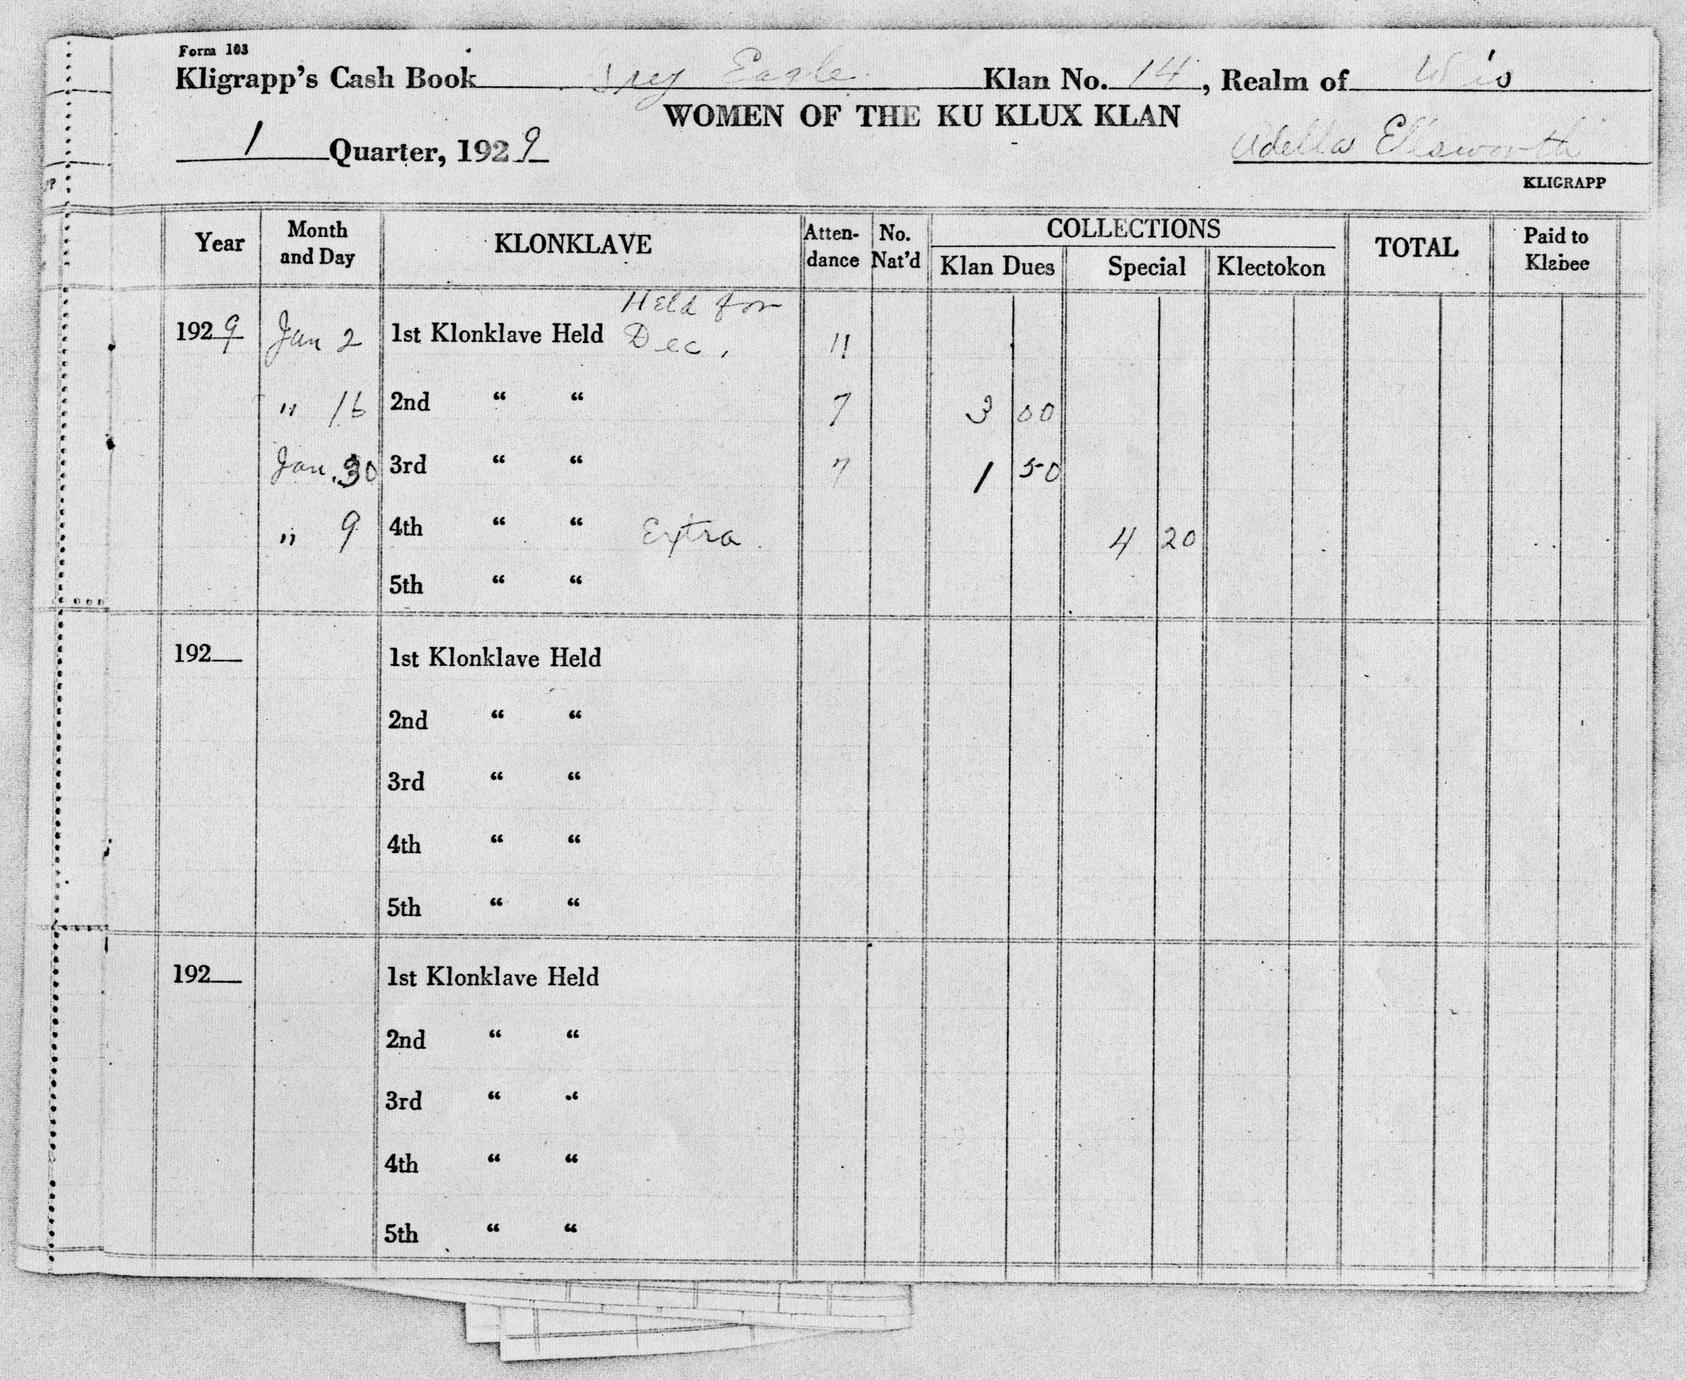 Form 103
Kligrapp's Cash Book Grey Eagle Klan No. 14, Realm of Wis
WOMEN OF THE KU KLUX KLAN
1 Quarter, 1929 Adella Ellsworth
KLIGRAPP
Year Month and Day KLONKLAVE Atten-dance No. Nat'd COLLECTIONS Klan Dues Special Klectokon TOTAL Paid to Klabee
Held for
1929 Jan 2 1st Klonklave Held Dec. 11
" 16 2nd " " 7 3 00
Jan. 30 3rd " " 7 1 50
" 9 4th " " Extra 4 20
5th " "
192 1st Klonklave Held
2nd " "
3rd " "
4th " "
5th " "
192 1st Klonklave Held
2nd " "
3rd " "
4th " "
5th " "